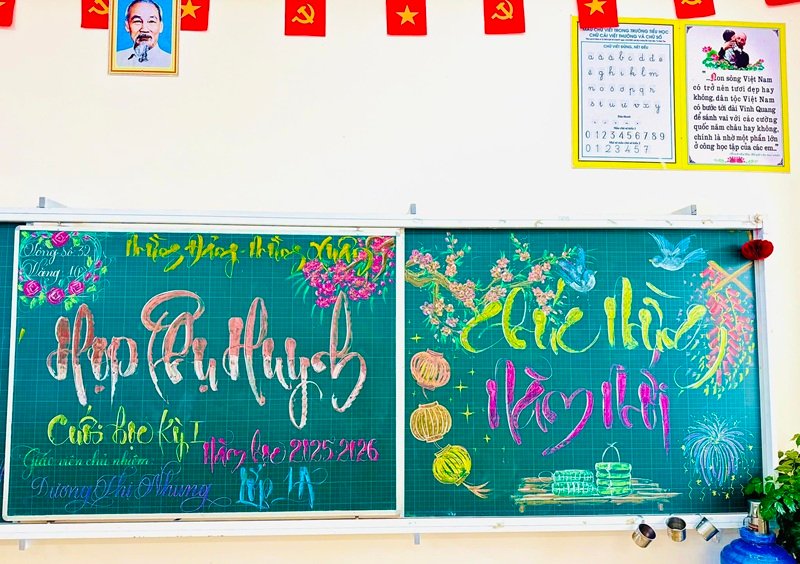 MẪU CHỮ VIẾT TRONG TRƯỜNG TIỂU HỌC
CHỮ CÁI VIẾT THƯỜNG VÀ CHỮ SỐ
CHỮ VIẾT ĐỨNG, NÉT ĐỀU
a ă â b c d đ e
ê g h i k l m
n o ô ơ p q r
s t u ư v x y
0 1 2 3 4 5 6 7 8 9
0 1 2 3 4 5 7
"...Non sông Việt Nam
có trở nên tươi đẹp hay
không, dân tộc Việt Nam
có bước tới đài Vinh Quang
để sánh vai với các cường
quốc năm châu hay không,
chính là nhờ một phần lớn
ở công học tập của các em..."
Tổng Số: 32
Vắng: 1P
Mừng Đảng - Mừng Xuân
Họp Phụ Huynh
Cuối học kỳ I
Năm học 2025-2026
Giáo viên chủ nhiệm:
Dương Thị Nhung
Lớp 1A
Chúc Mừng
Năm Mới